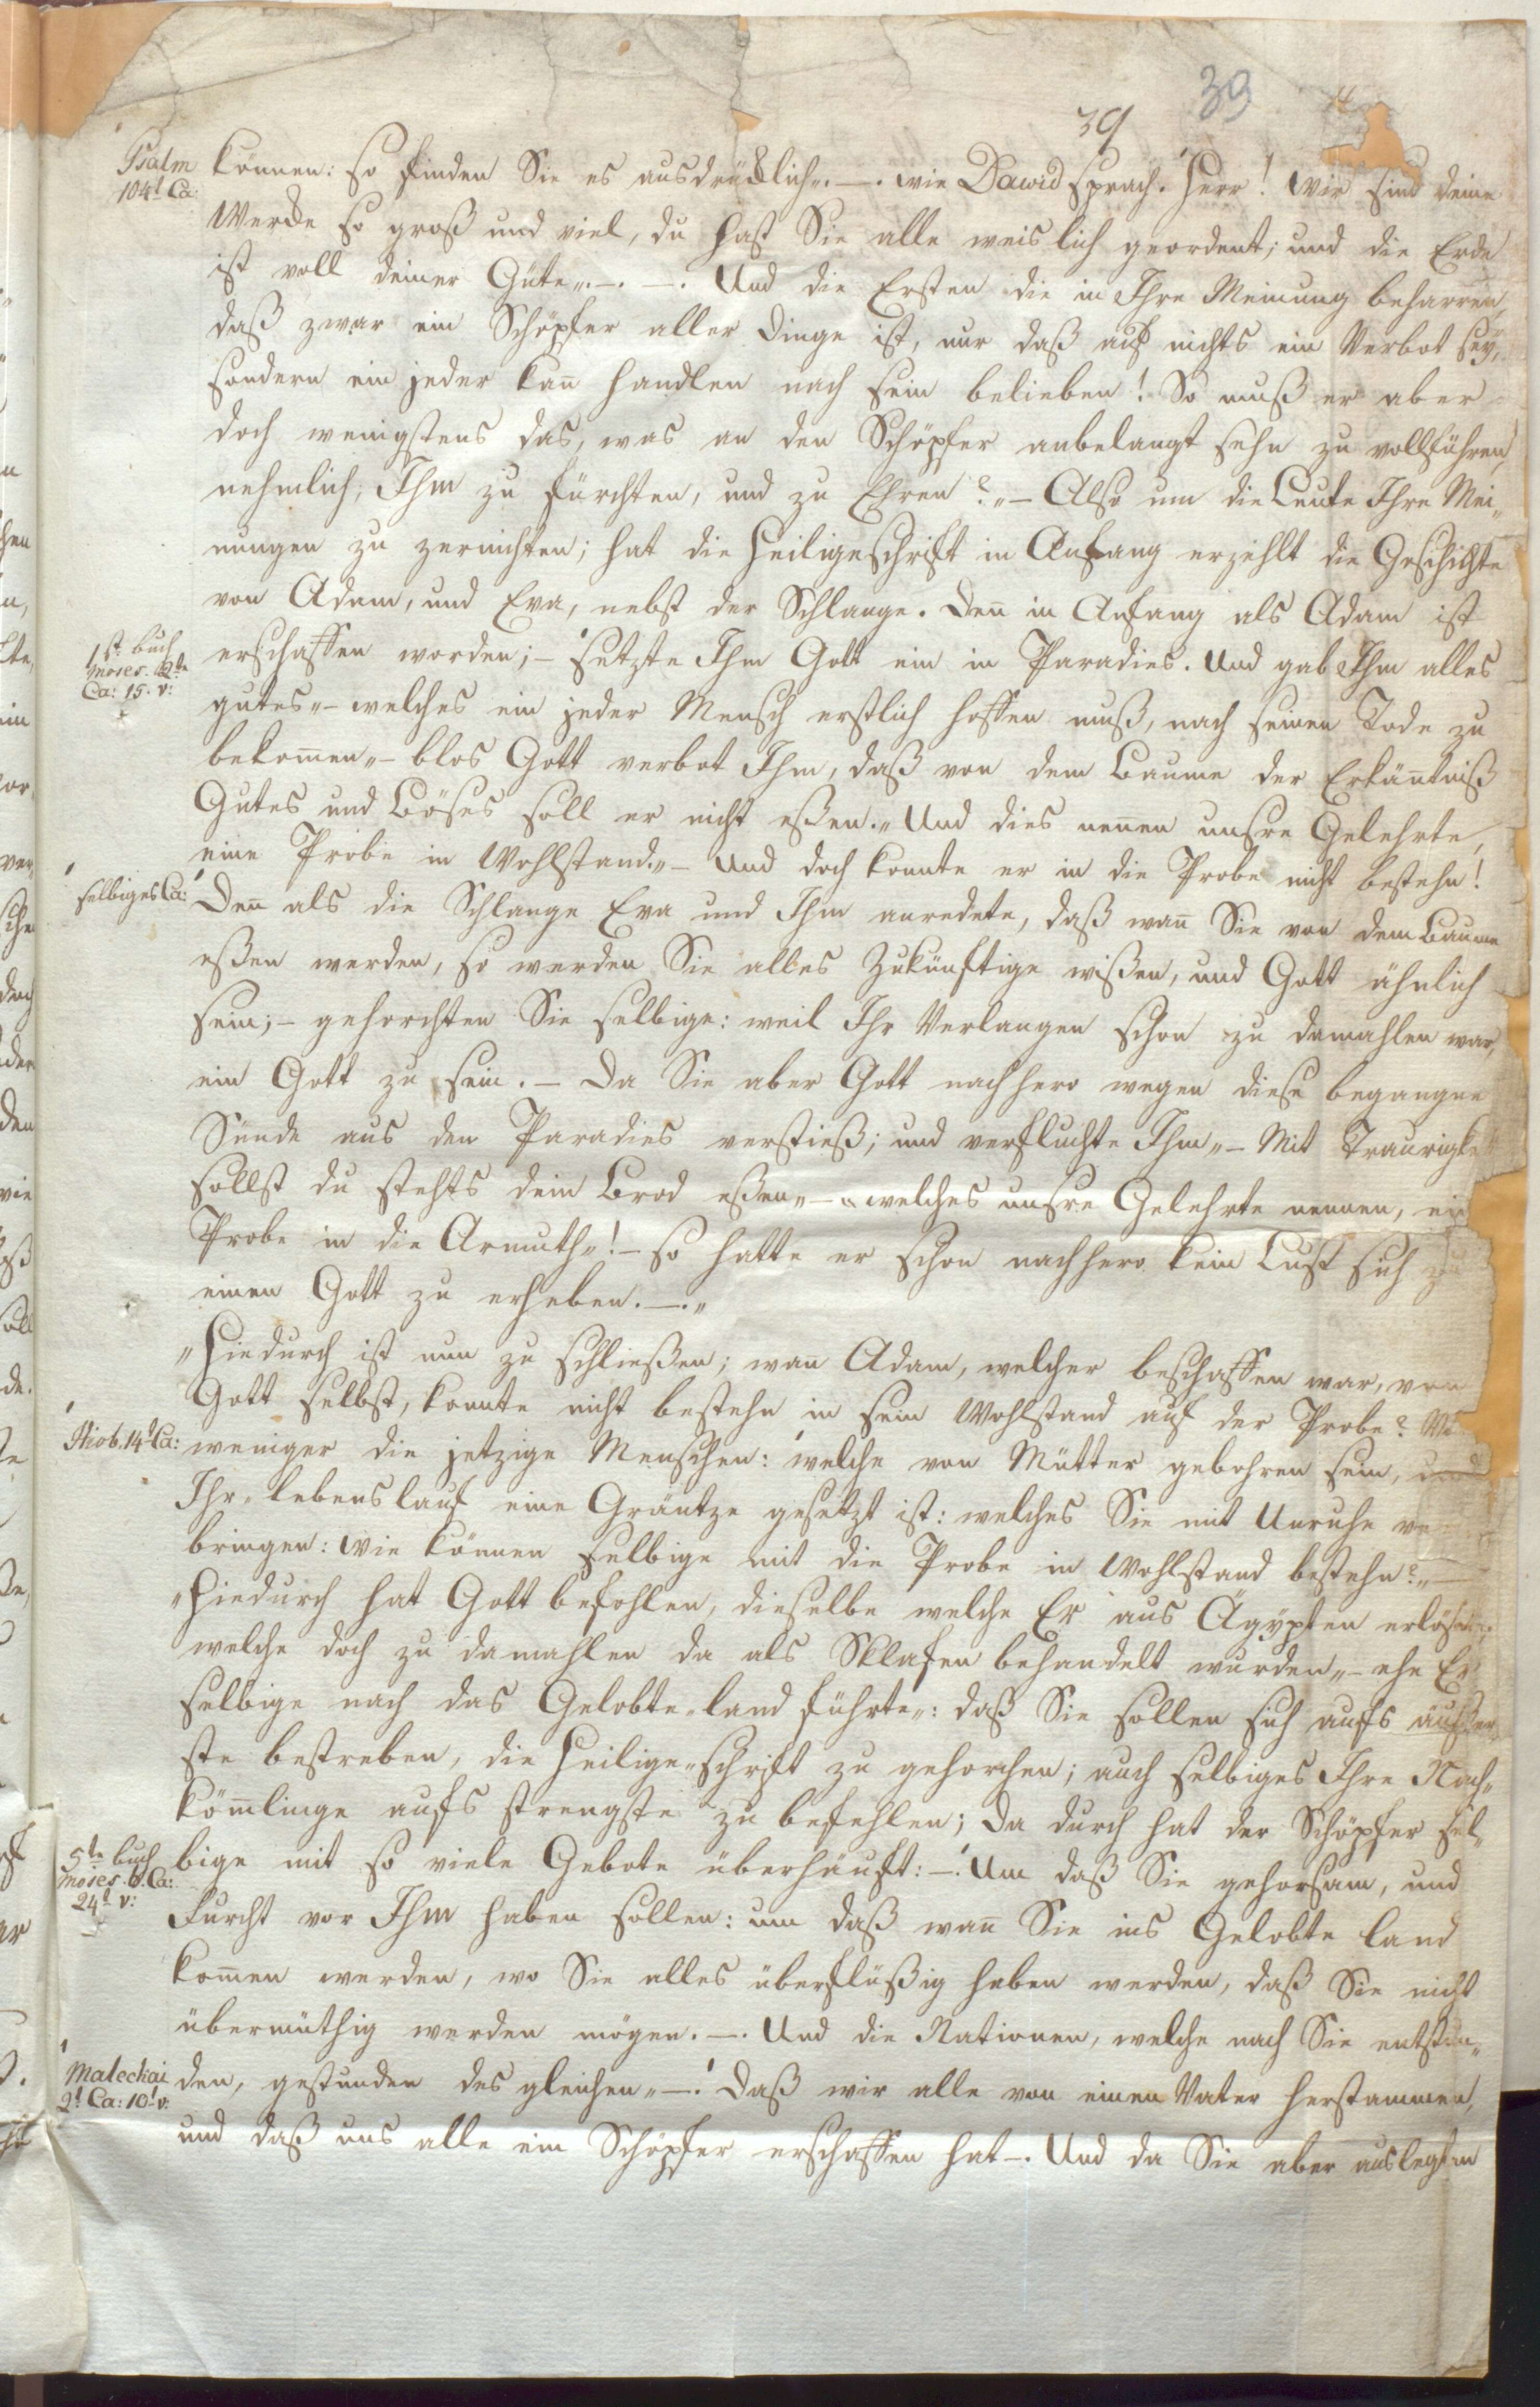 39
39
Psalm
104t Ca:
können: so finden Sie es ausdrücklich„. —. wie Dawid sprach. Herr! Wie sind deine
Werke so groß und viel, du hast Sie alle weislich geordent; und die Erde
ist voll deiner Güte„. —. —. Und die Ersten die in Ihre Meinung beharren,
daß zwar ein Schöpfer aller Dinge ist, nur daß auf nichts ein Verbot seÿ,
sondern ein jeder kan̄ handlen nach sein belieben! So muß er aber
doch wenigstens das, was an den Schöpfer anbelangt sehn zu vollführen,
nehmlich; Ihm zu fürchten, und zu Ehren?„ — Also um die Leute Ihre Mei„
nungen zu zernichten; hat die Heiligeschrift in Anfang erzehlt die Geschichte
von Adam, und Eva, nebst der Schlange. Den̄ in Anfang als Adam ist
1st. buch
Moses. 2te
Ca: 15. v:
erschaffen worden; — setzte Ihm Gott ein in Paradies. Und gab Ihm alles
gutes„ — welches ein jeder Mensch erstlich hoffen muß, nach seinen Tode zu
bekom̄en„ — blos Gott verbot Ihm, daß von dem Baume der Erkäntniß
Gutes und Böses soll er nicht eßen.„ Und dies nen̄en unsre Gelehrte,
eine Probe in Wohlstand.„ — Und doch konnte er in die Probe nicht bestehn!
selbiges Ca:
Den̄ als die Schlange Eva und Ihm anredete, daß wan̄ Sie von dem Baume
eßen werden, so werden Sie alles Zukünftige wißen, und Gott ähnlich
sein; — gehorchten Sie selbige: weil Ihr Verlangen schon zu damahlen war,
ein Gott zu sein. — Da Sie aber Gott nachhero wegen diese begangne
Sünde aus den Paradies verstieß; und verfluchte Ihm„ — Mit Traurigkeit
sollst du stehts dein Brod eßen„ — welches unsre Gelehrte nennen,
Probe in die Armuth„! — so hatte er schon nachhero kein Lust sich zu
einen Gott zu erheben. —.„
„Hiedurch ist nun zu schließen; wan̄ Adam, welcher beschaffen war, von
Gott selbst, konnte nicht bestehn in sein Wohlstand auf der Probe?
Hiob. 14t Ca:
weniger die jetzige Menschen: welche von Mütter gebohren sein, und
Ihr„ lebenslauf eine Gräntze gesetzt ist: welches Sie mit Unruhe ver
bringen: wie können selbige mit die Probe in Wohlstand bestehn?„ —
„Hiedurch hat Gott befohlen, dieselbe welche Er aus Ägÿpten erlösete;
welche doch zu damahlen da als Sklafen behandelt wurden„ — ehe Er
selbige nach das Gelobte„land führte„: daß Sie sollen sich aufs äußer„
ste bestreben, die Heilige„schrift zu gehorchen; auch selbiges Ihre Nach„
köm̄linge aufs strengste zu befehlen; Da durch hat der Schöpfer sel„
5te buch
Moses. 6. Ca:
24t v:
bige mit so viele Gebote überhäuft: —. Um daß Sie gehorsam, und
Furcht vor Ihm haben sollen: um daß wan̄ Sie ins Gelobte land
kom̄en werden, wo Sie alles überflüßig haben werden, daß Sie nicht
übermüthig werden mögen. —. Und die Nationen, welche nach Sie entstan„
Maleckai
2t Ca: 10t v:
den, gestunden des gleichen„ —. Daß wir alle von einen Vater herstammen,
und daß uns alle ein Schöpfer erschaffen hat —. Und da Sie aber auslegten